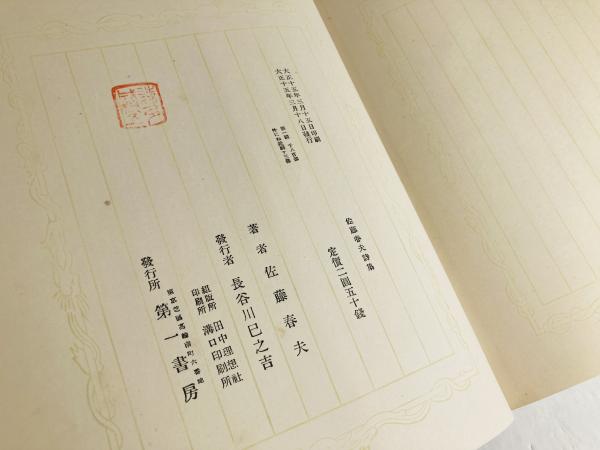 佐藤春夫詩集
定價二圓五十錢
大正十五年三月十五日印刷
大正十五年三月十八日發行
著者 佐藤春夫
發行者 長谷川巳之吉
組版所 田中理想社
印刷所 溝口印刷所
發行所 第一書房